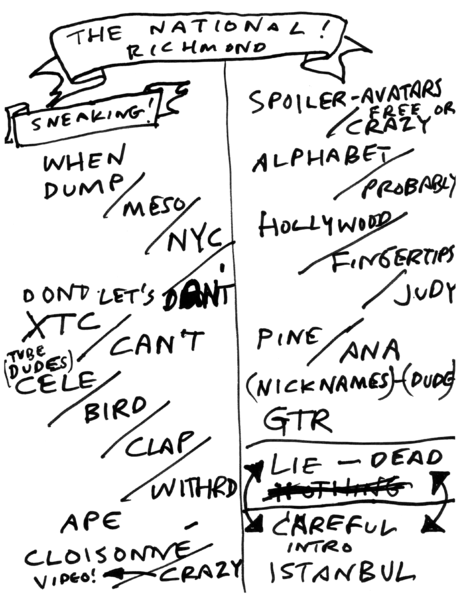 THE NATIONAL!
RICHMOND
SNEAKING!
WHEN
DUMP
MESO
NYC
DONT LET'S
XTC
CAN'T
(TUBE
DUDES)
CELE
BIRD
CLAP
WITHRD
APE
CLOISONNE
VIDEO! CRAZY
SPOILER-AVATARS
FREE OR
CRAZY
ALPHABET
PROBABLY
HOLLYWOOD
FINGERTIPS
JUDY
PINE
ANA
(NICKNAMES)-(DUDE)
GTR
LIE - DEAD
NOTHING
CAREFUL
INTRO
ISTANBUL